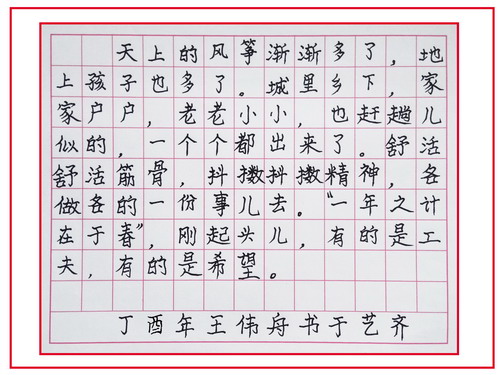 天上的风筝渐渐多了，地
上孩子也多了。城里乡下，家
家户户，老老小小，也赶趟儿
似的，一个个都出来了。舒活
舒活筋骨，抖擞抖擞精神，各
做各的一份事儿去。“一年之计
在于春”，刚起头儿，有的是工
夫，有的是希望。
丁酉年王伟舟书于艺齐